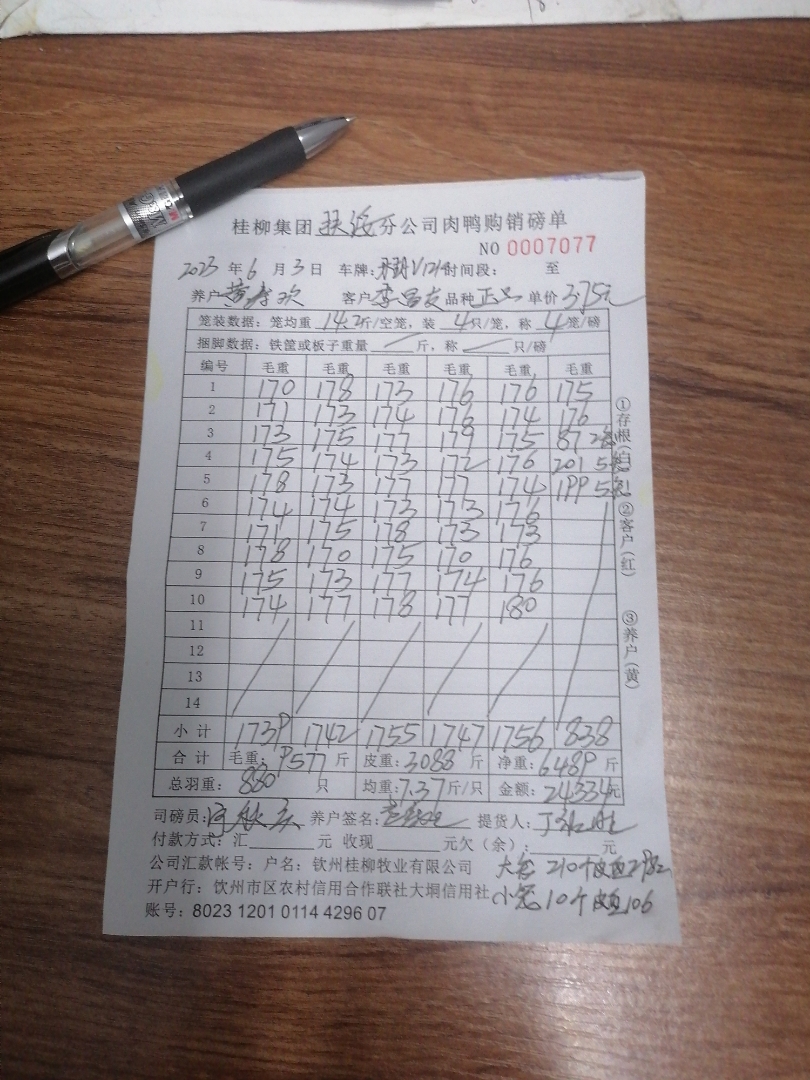 桂柳集团扶绥分公司肉鸭购销磅单
NO 0007077
2023 年 6 月 3 日 车牌: 时间段: 至
养户 黄 欢 客户 李昌友 品种 正品 单价 3.75元
笼装数据: 笼均重 14.2斤/空笼, 装 4只/笼, 称 4笼/磅
捆脚数据: 铁筐或板子重量 斤, 称 只/磅
编号 毛重 毛重 毛重 毛重 毛重 毛重
1 170 178 173 176 176 175
2 171 173 174 176 174 176
3 173 175 177 179 175 87 2笼
4 175 174 173 172 176 201 5笼
5 178 173 177 177 174 199 5笼
6 174 174 173 173 176
7 171 175 178 173 173
8 178 170 175 170 176
9 175 173 177 174 176
10 174 177 178 177 180
11
12
13
14
小计 1739 1742 1755 1747 1756 838
合计 毛重: 9577 斤 皮重: 3088 斤 净重: 6489 斤
总羽重: 880 只 均重: 7.37斤/只 金额: 24334元
司磅员: 养户签名: 提货人:
付款方式: 汇 元 收现 元欠(余): 元
公司汇款帐号: 户名: 钦州桂柳牧业有限公司 大笼 210个皮重2982
开户行: 钦州市区农村信用合作联社大垌信用社 小笼 10个皮重106
账号: 8023 1201 0114 4296 07
①存根(白) ②客户(红) ③养户(黄)